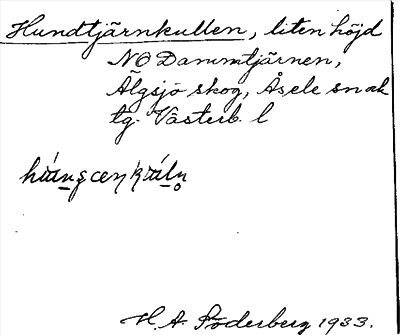 Hundtjärnkullen, liten höjd
NO Dammtjärnen,
Älgsjö skog, Åsele sn ock
tg. Västerb. l
H. A. Söderberg 1933.